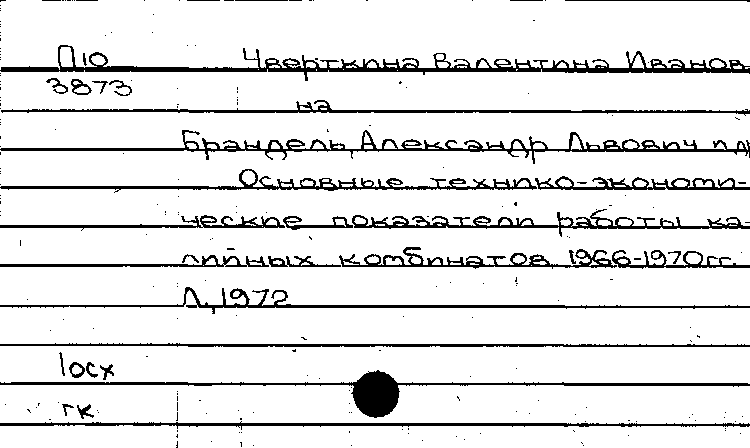 П10 Чверткина, Валентина Иванов
3873
на
Брандель, Александр Львович и др
Основные технико-экономи-
ческие показатели работы ка-
лийных комбинатов 1966-1970гг.
Л., 1972
1осх
гк